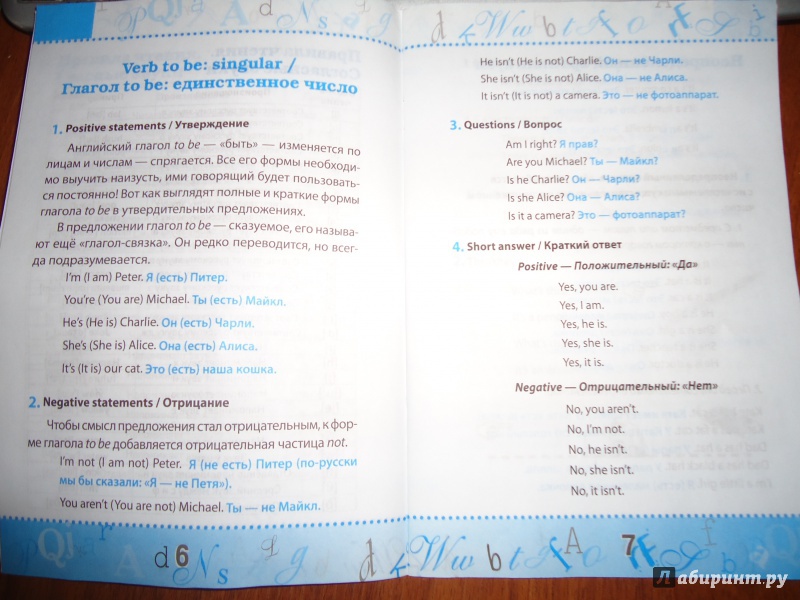 Verb to be: singular /
Глагол to be: единственное число
1. Positive statements / Утверждение
Английский глагол to be — «быть» — изменяется по
лицам и числам — спрягается. Все его формы необходи-
мо выучить наизусть, ими говорящий будет пользовать-
ся постоянно! Вот как выглядят полные и краткие формы
глагола to be в утвердительных предложениях.
В предложении глагол to be — сказуемое, его называ-
ют ещё «глагол-связка». Он редко переводится, но все-
гда подразумевается.
I'm (I am) Peter. Я (есть) Питер.
You're (You are) Michael. Ты (есть) Майкл.
He's (He is) Charlie. Он (есть) Чарли.
She's (She is) Alice. Она (есть) Алиса.
It's (It is) our cat. Это (есть) наша кошка.
2. Negative statements / Отрицание
Чтобы смысл предложения стал отрицательным, к фор-
ме глагола to be добавляется отрицательная частица not.
I'm not (I am not) Peter. Я (не есть) Питер (по-русски
мы бы сказали: «Я — не Петя»).
You aren't (You are not) Michael. Ты — не Майкл.
6
He isn't (He is not) Charlie. Он — не Чарли.
She isn't (She is not) Alice. Она — не Алиса.
It isn't (It is not) a camera. Это — не фотоаппарат.
3. Questions / Вопрос
Am I right? Я прав?
Are you Michael? Ты — Майкл?
Is he Charlie? Он — Чарли?
Is she Alice? Она — Алиса?
Is it a camera? Это — фотоаппарат?
4. Short answer / Краткий ответ
Positive — Положительный: «Да»
Yes, you are.
Yes, I am.
Yes, he is.
Yes, she is.
Yes, it is.
Negative — Отрицательный: «Нет»
No, you aren't.
No, I'm not.
No, he isn't.
No, she isn't.
No, it isn't.
7
Лабиринт.ру